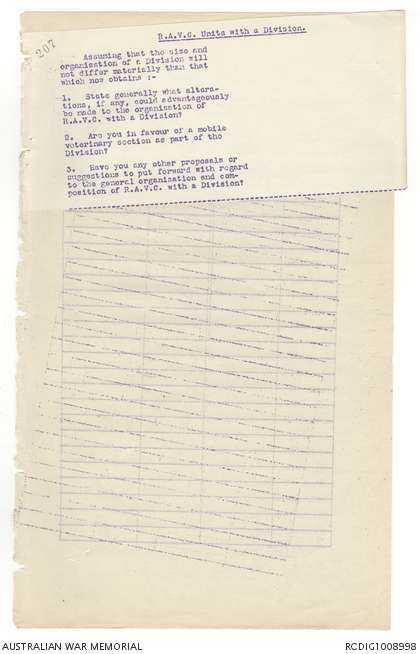 207
R.A.V.C. Units with a Division.
Assuming that the size and
organisation of a Division will
not differ materially than that
which now obtains :-
1. State generally what altera-
tions, if any, could advantageously
be made to the organisation of
R.A.V.C. with a Division?
2. Are you in favour of a mobile
veterinary section as part of the
Division?
3. Have you any other proposals or
suggestions to put forward with regard
to the general organisation and com-
position of R.A.V.C. with a Division?
AUSTRALIAN WAR MEMORIAL
RCDIG1008998